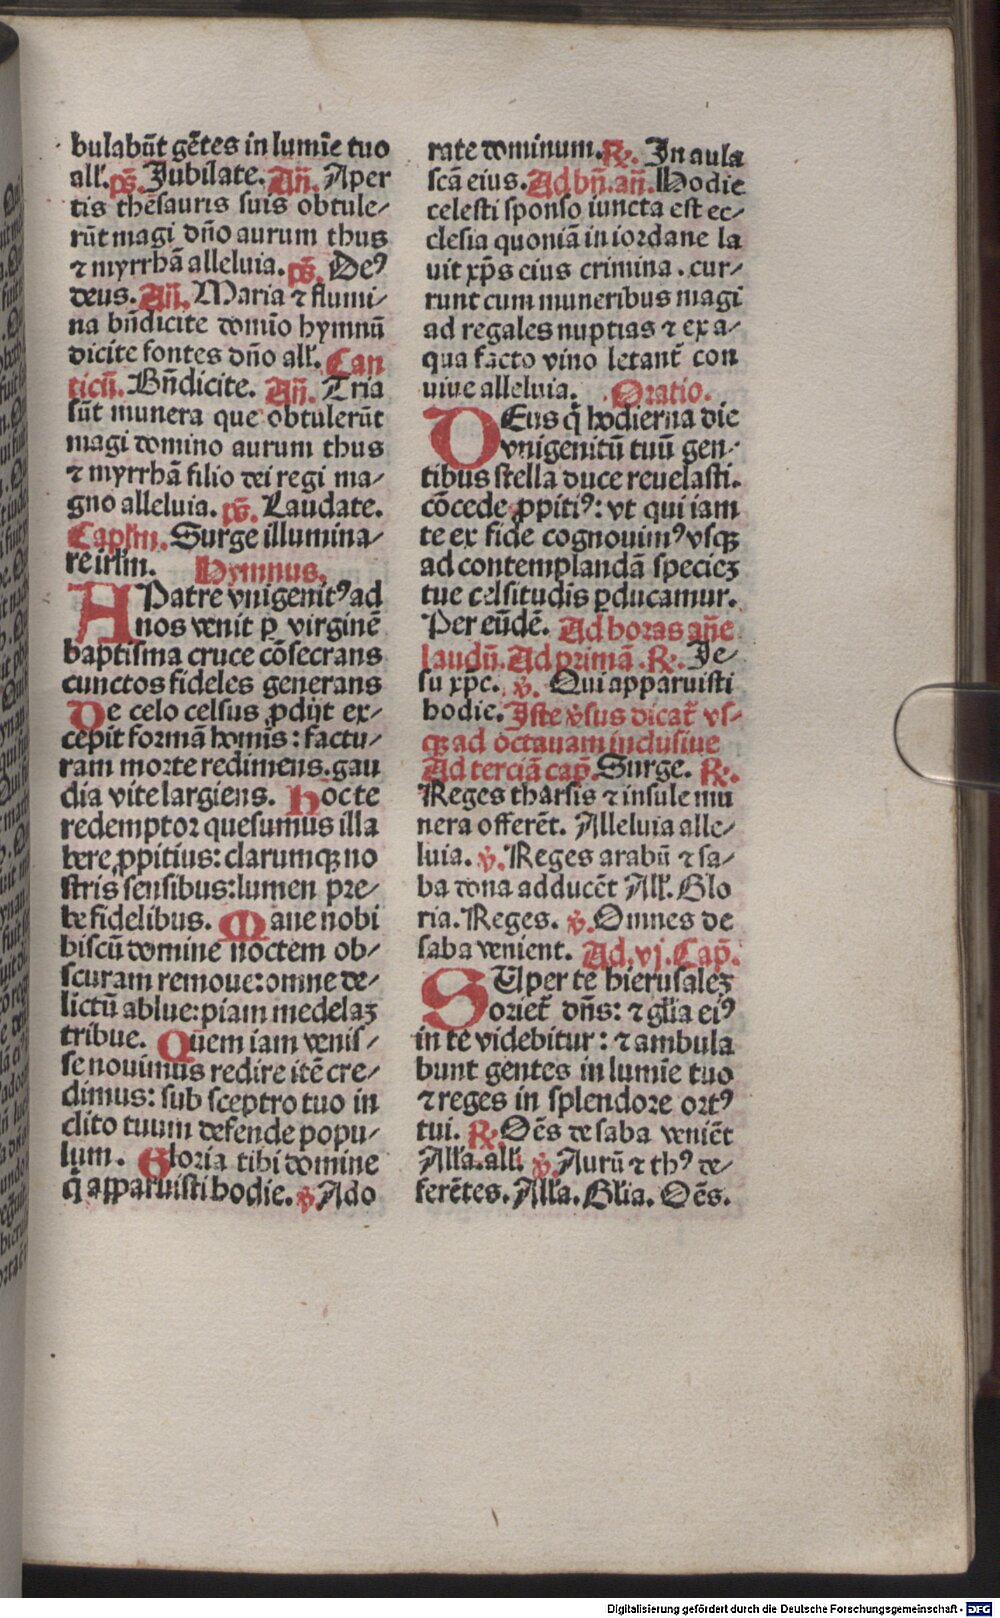 bulabūt gētes in lumīe tuo
all'. p̄s. Jubilate. Añ. Aper
tis thēsauris suis obtule/
rūt magi dño aurum thus
⁊ myrrhā alleluia. p̄s. De⁹
deus. Añ. Maria ⁊ flumi/
na bñdicite domīo hymnū
dicite fontes dño all'. Can
ticū. Bñdicite. Añ. Tria
sūt munera que obtulerūt
magi domino aurum thus
⁊ myrrhā filio dei regi ma/
gno alleluia. p̄s. Laudate.
Caplm. Surge illumina/
re irlm. Hymnus.
A Patre vnigenit⁹ ad
nos venit ꝑ virginē
baptisma cruce cōsecrans
cunctos fideles generans
De celo celsus ꝓdijt ex/
cepit formā homīs: factu/
ram morte redimens. gau
dia vite largiens. Hoc te
redemptor quesumus illa
bere ꝓpitius: clarumqꝫ no
stris sensibus: lumen pre/
be fidelibus. Mane nobi
biscū domine noctem ob/
scuram remoue: omne de/
lictū ablue: piam medelaꝫ
tribue. Quem iam venis/
se nouimus redire itē cre/
dimus: sub sceptro tuo in
clito tuum defende popu/
lum. Gloria tibi domine
q̄ apparuisti hodie. ℣. Ado
rate dominum. ℟. In aula
scā eius. Ad bñ. añ. Hodie
celesti sponso iuncta est ec/
clesia quoniā in iordane la
uit xp̄s eius crimina. cur/
runt cum muneribus magi
ad regales nuptias ⁊ ex a/
qua facto vino letant̄ con
uiue alleluia. Oratio.
DEus q̄ hodierna die
vnigenitū tuū gen/
tibus stella duce reuelasti.
cōcede ꝓpiti⁹: vt qui iam
te ex fide cognouim⁹ vsqꝫ
ad contemplandā specieꝫ
tue celsitudīs ꝑducamur.
Per eūdē. Ad horas añe
laudū. Ad primā. ℟. Je/
su xp̄e. ℣. Qui apparuisti
hodie. Iste v̄sus dicat̄ vs/
qꝫ ad octauam inclusiue
Ad terciā cap̄. Surge. ℟.
Reges tharsis ⁊ insule mu
nera offerēt. Alleluia alle/
luia. ℣. Reges arabū ⁊ sa/
ba dona adducēt All'. Glo
ria. Reges. ℣. Omnes de
saba venient. Ad. vj. Cap̄.
SUper te hierusaleꝫ
oriet̄ dñs: ⁊ gl̄ia ei⁹
in te videbitur: ⁊ ambula
bunt gentes in lumīe tuo
⁊ reges in splendore ort⁹
tui. ℟. Oēs de saba veniēt
All'a. all'. ℣. Aurū ⁊ th⁹ de/
ferētes. All'a. Gl̄ia. Oēs.
Digitalisierung gefördert durch die Deutsche Forschungsgemeinschaft - DFG